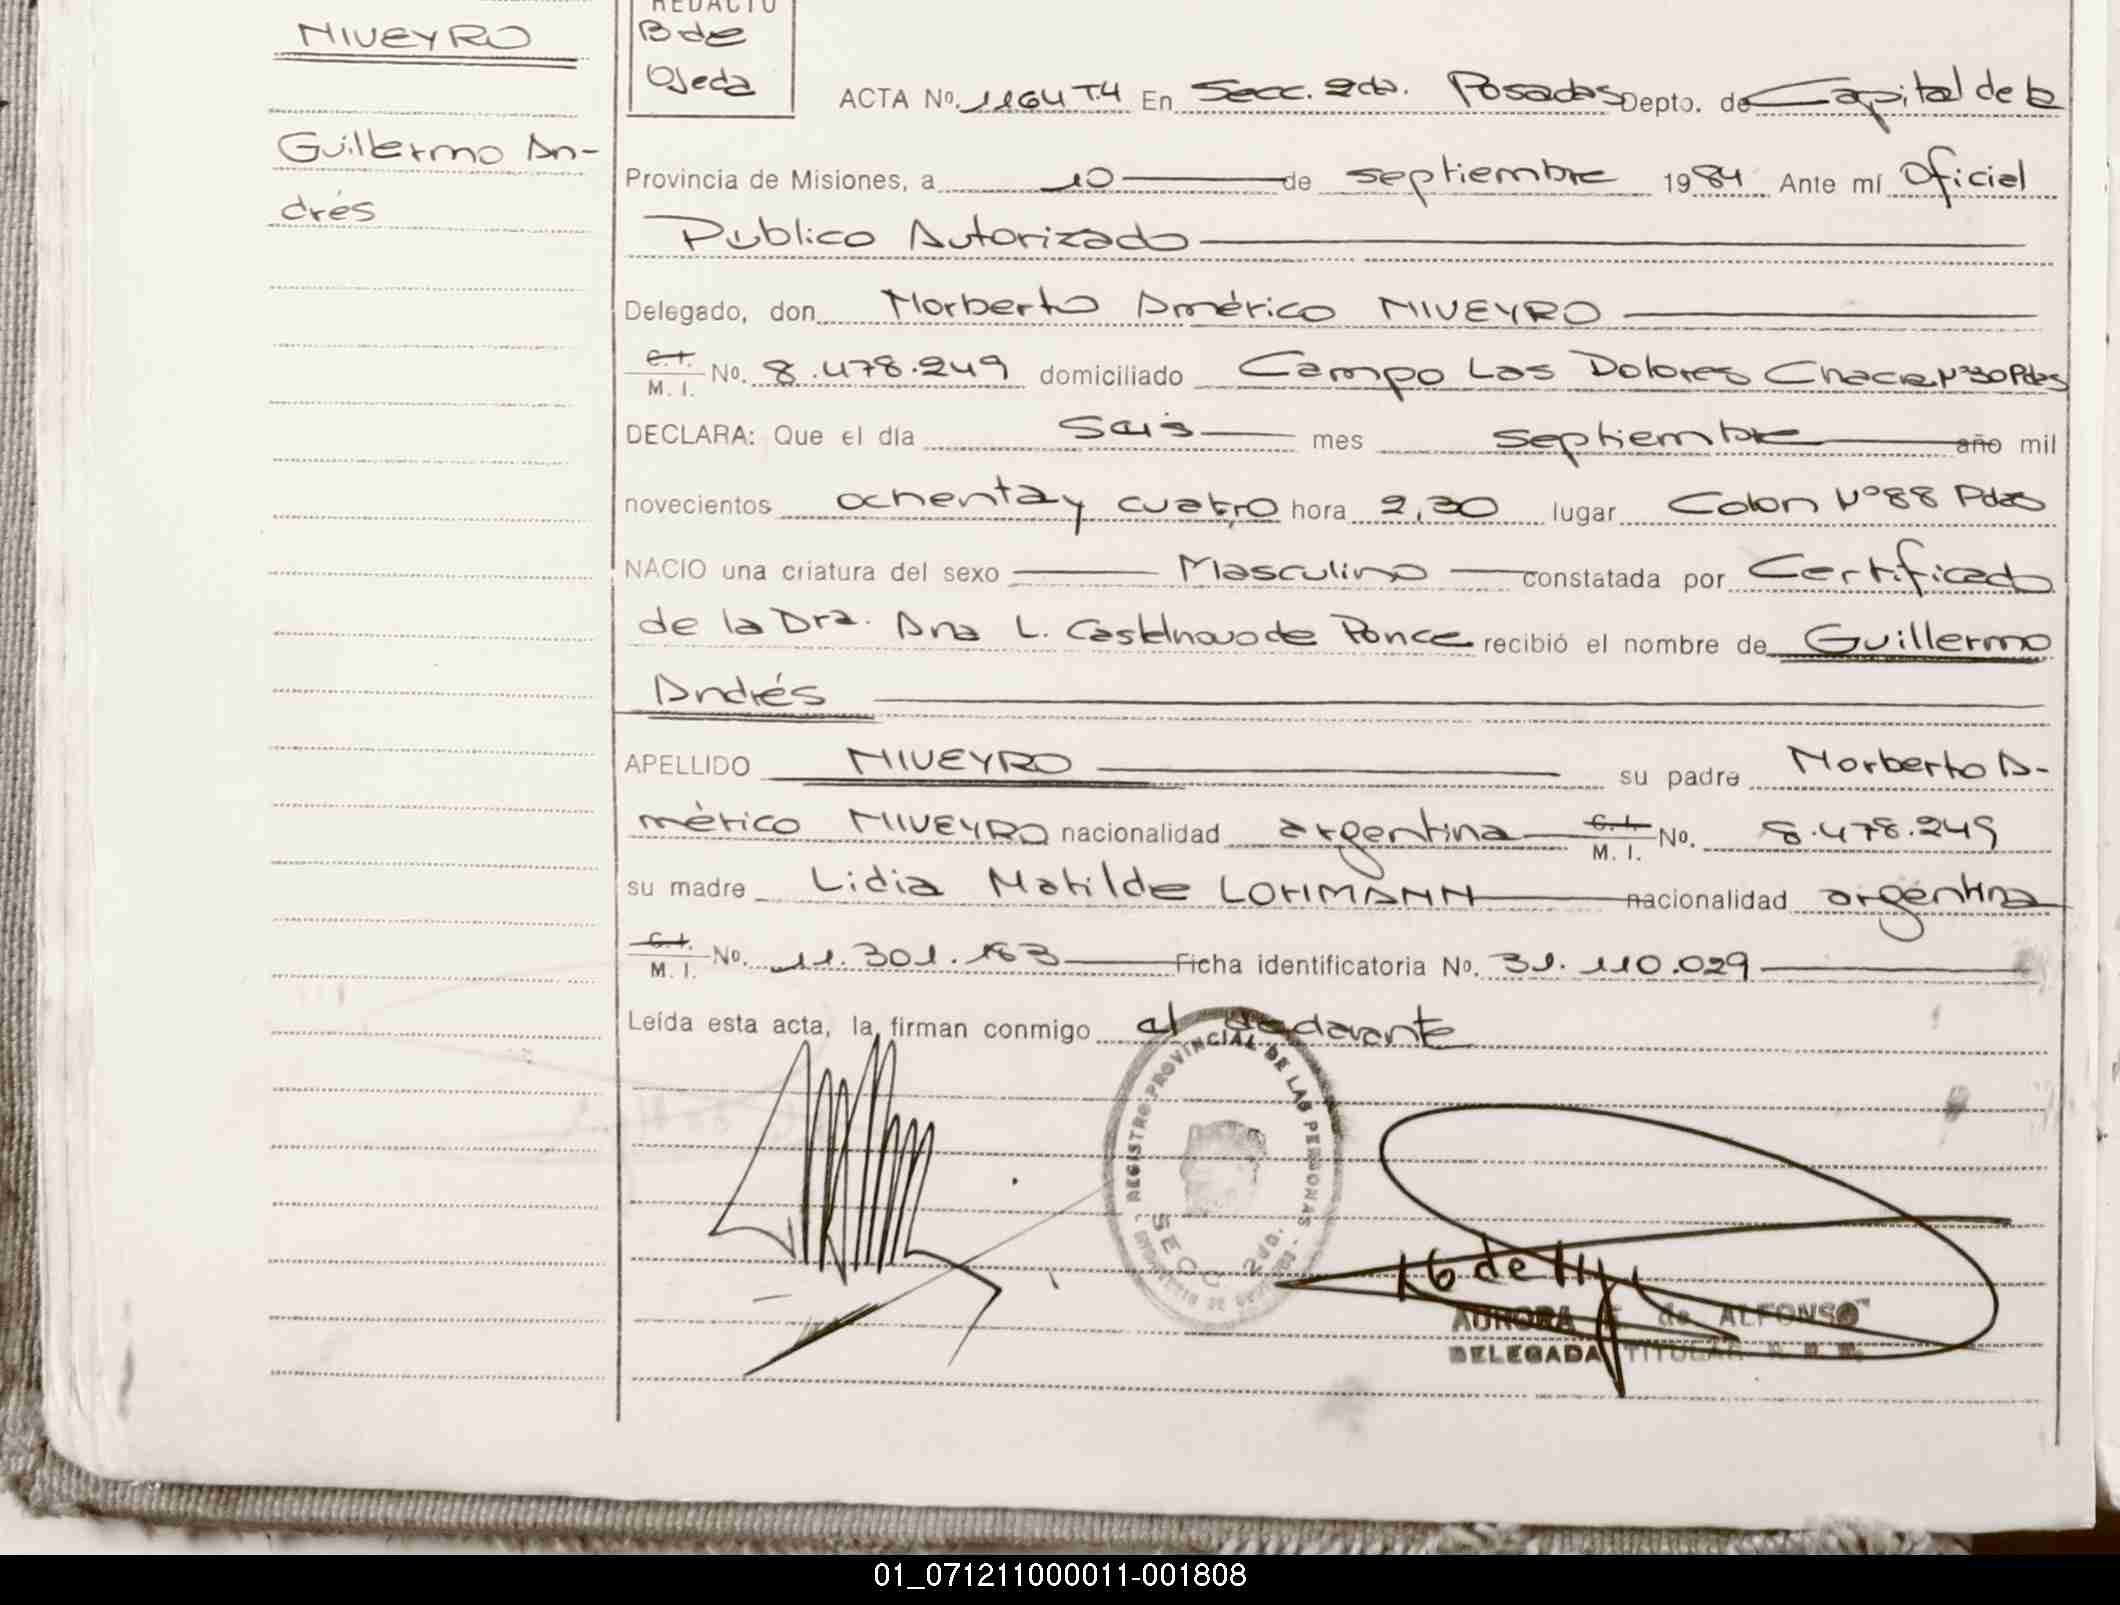 NIVEYRO
Guillermo An-
drés
REDACTO
B de
Ojeda
ACTA No. 1164 T.4 En Secc. 2da. Posadas Depto. de Capital de la
Provincia de Misiones, a 10 de septiembre 1984 Ante mí Oficial
Público Autorizado
Delegado, don Norberto Américo NIVEYRO
C.I. M. I. No. 8.478.249 domiciliado Campo Las Dolores Chacra Nº30 Pdas
DECLARA: Que el día Seis mes septiembre año mil
novecientos ochenta y cuatro hora 2,30 lugar Colon Nº88 Pdas
NACIO una criatura del sexo Masculino constatada por Certificado
de la Dra. Ana L. Castelnovo de Ponce recibió el nombre de Guillermo
Andrés
APELLIDO NIVEYRO su padre Norberto A-
mérico NIVEYRO nacionalidad argentina C.I. M. I. No. 8.478.249
su madre Lidia Matilde LOHMANN nacionalidad argentina
C.I. M. I. No. 11.301.163 Ficha identificatoria No. 31.110.029
Leída esta acta, la firman conmigo el declarante
REGISTRO PROVINCIAL DE LAS PERSONAS
SECC 2da.
AURORA de ALFONSO
DELEGADA TITULAR
01_071211000011-001808